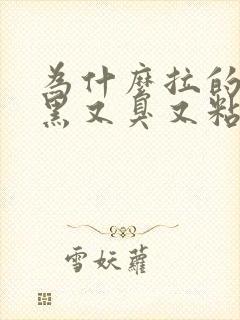 為什麼拉的
黑又臭又粘
雪妖蘿